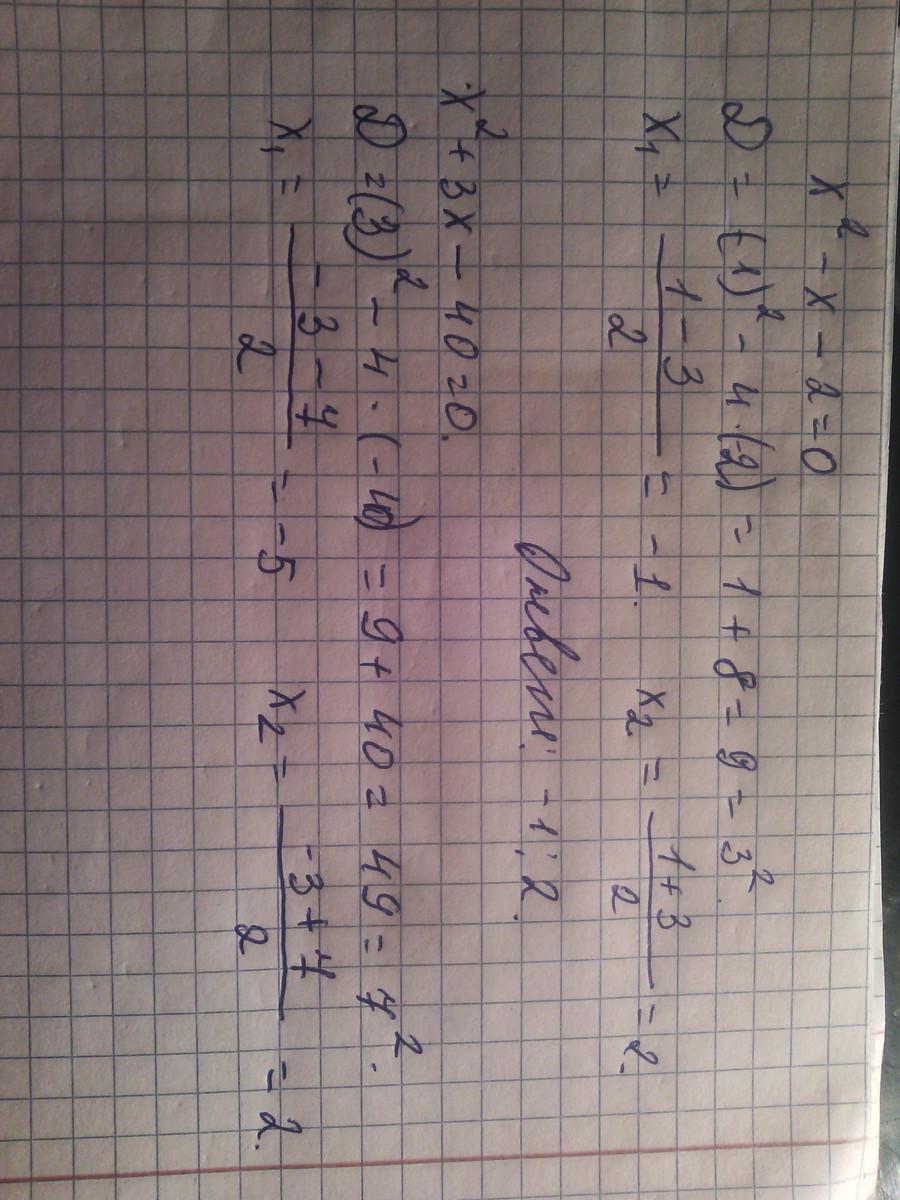 x² - x - 2 = 0
D = (1)² - 4·(-2) = 1 + 8 = 9 = 3².
x₁ = (1 - 3)/2 = -1. x₂ = (1 + 3)/2 = 2.
Ответ: -1; 2.
x² + 3x - 40 = 0.
D = (3)² - 4·(-40) = 9 + 40 = 49 = 7².
x₁ = (-3 - 7)/2 = -5 x₂ = (-3 + 7)/2 = 2.